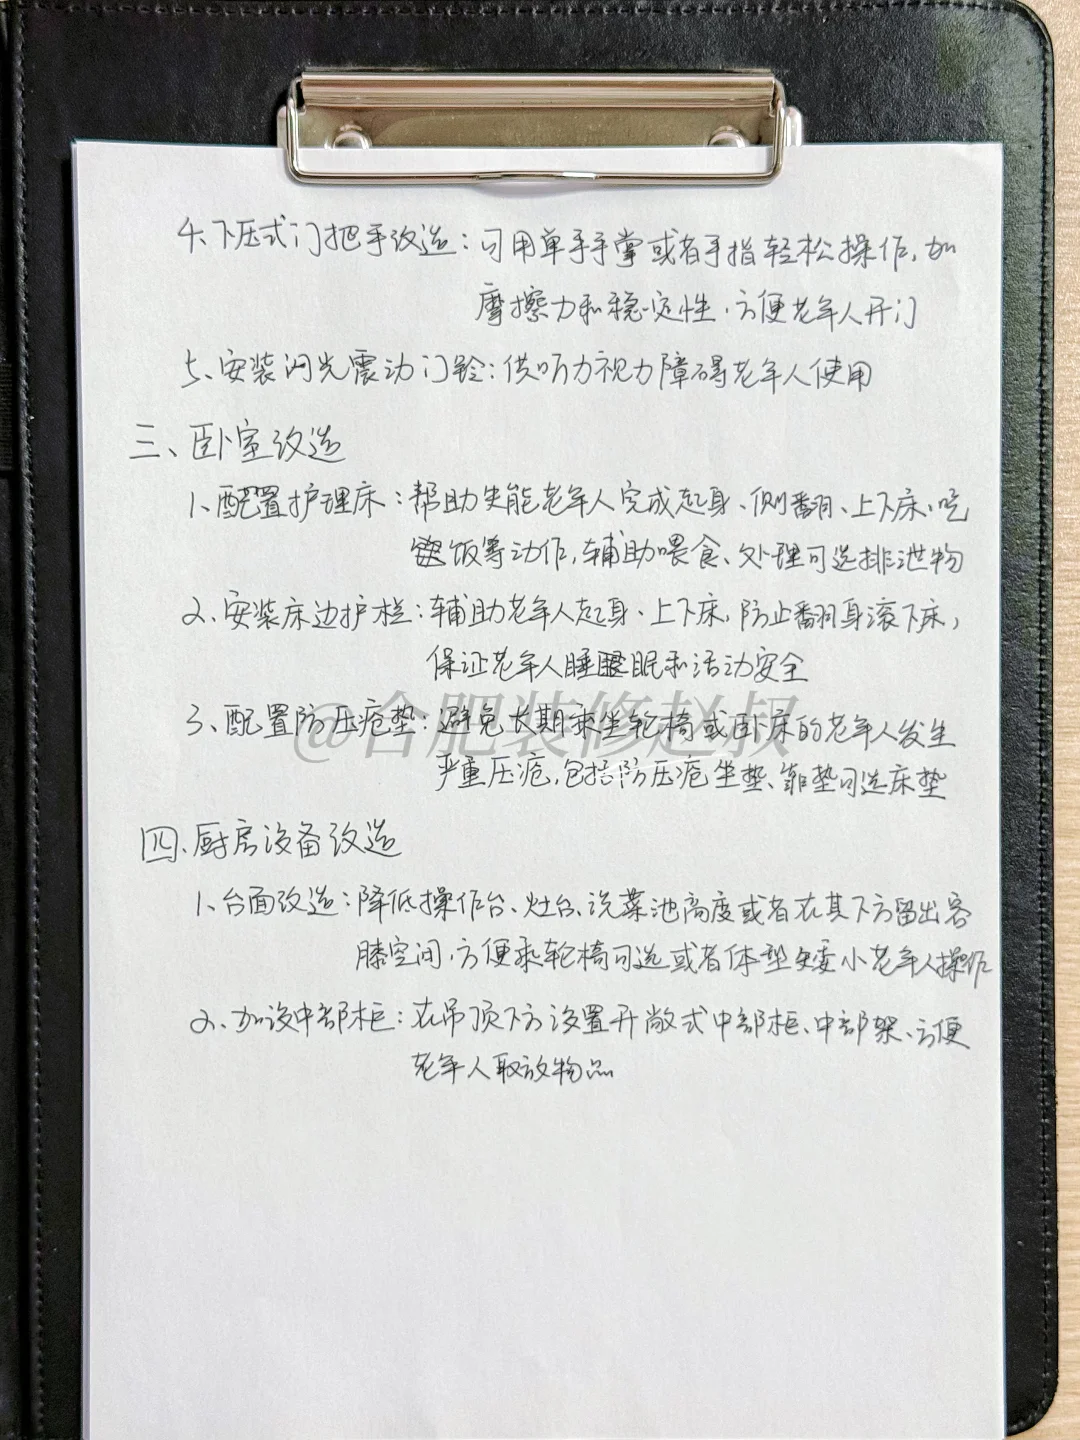 4、下压式门把手改造：可用单手手掌或者手指轻松操作，加
摩擦力和稳定性，方便老年人开门
5、安装闪光震动门铃：供听力视力障碍老年人使用
三、卧室改造
1、配置护理床：帮助失能老年人完成起身、侧翻、上下床、吃
饭等动作，辅助喂食、处理可选排泄物
2、安装床边护栏：辅助老年人起身、上下床，防止翻身滚下床，
保证老年人睡眠和活动安全
3、配置防压疮垫：避免长期乘坐轮椅或卧床的老年人发生
严重压疮，包括防压疮坐垫、靠垫可选床垫
@合肥装修赵叔
四、厨房设备改造
1、台面改造：降低操作台、灶台、洗菜池高度或者在其下方留出容
膝空间，方便乘轮椅可选或者体型矮小老年人操作
2、加设中部柜：在吊顶下方设置开敞式中部柜、中部架、方便
老年人取放物品